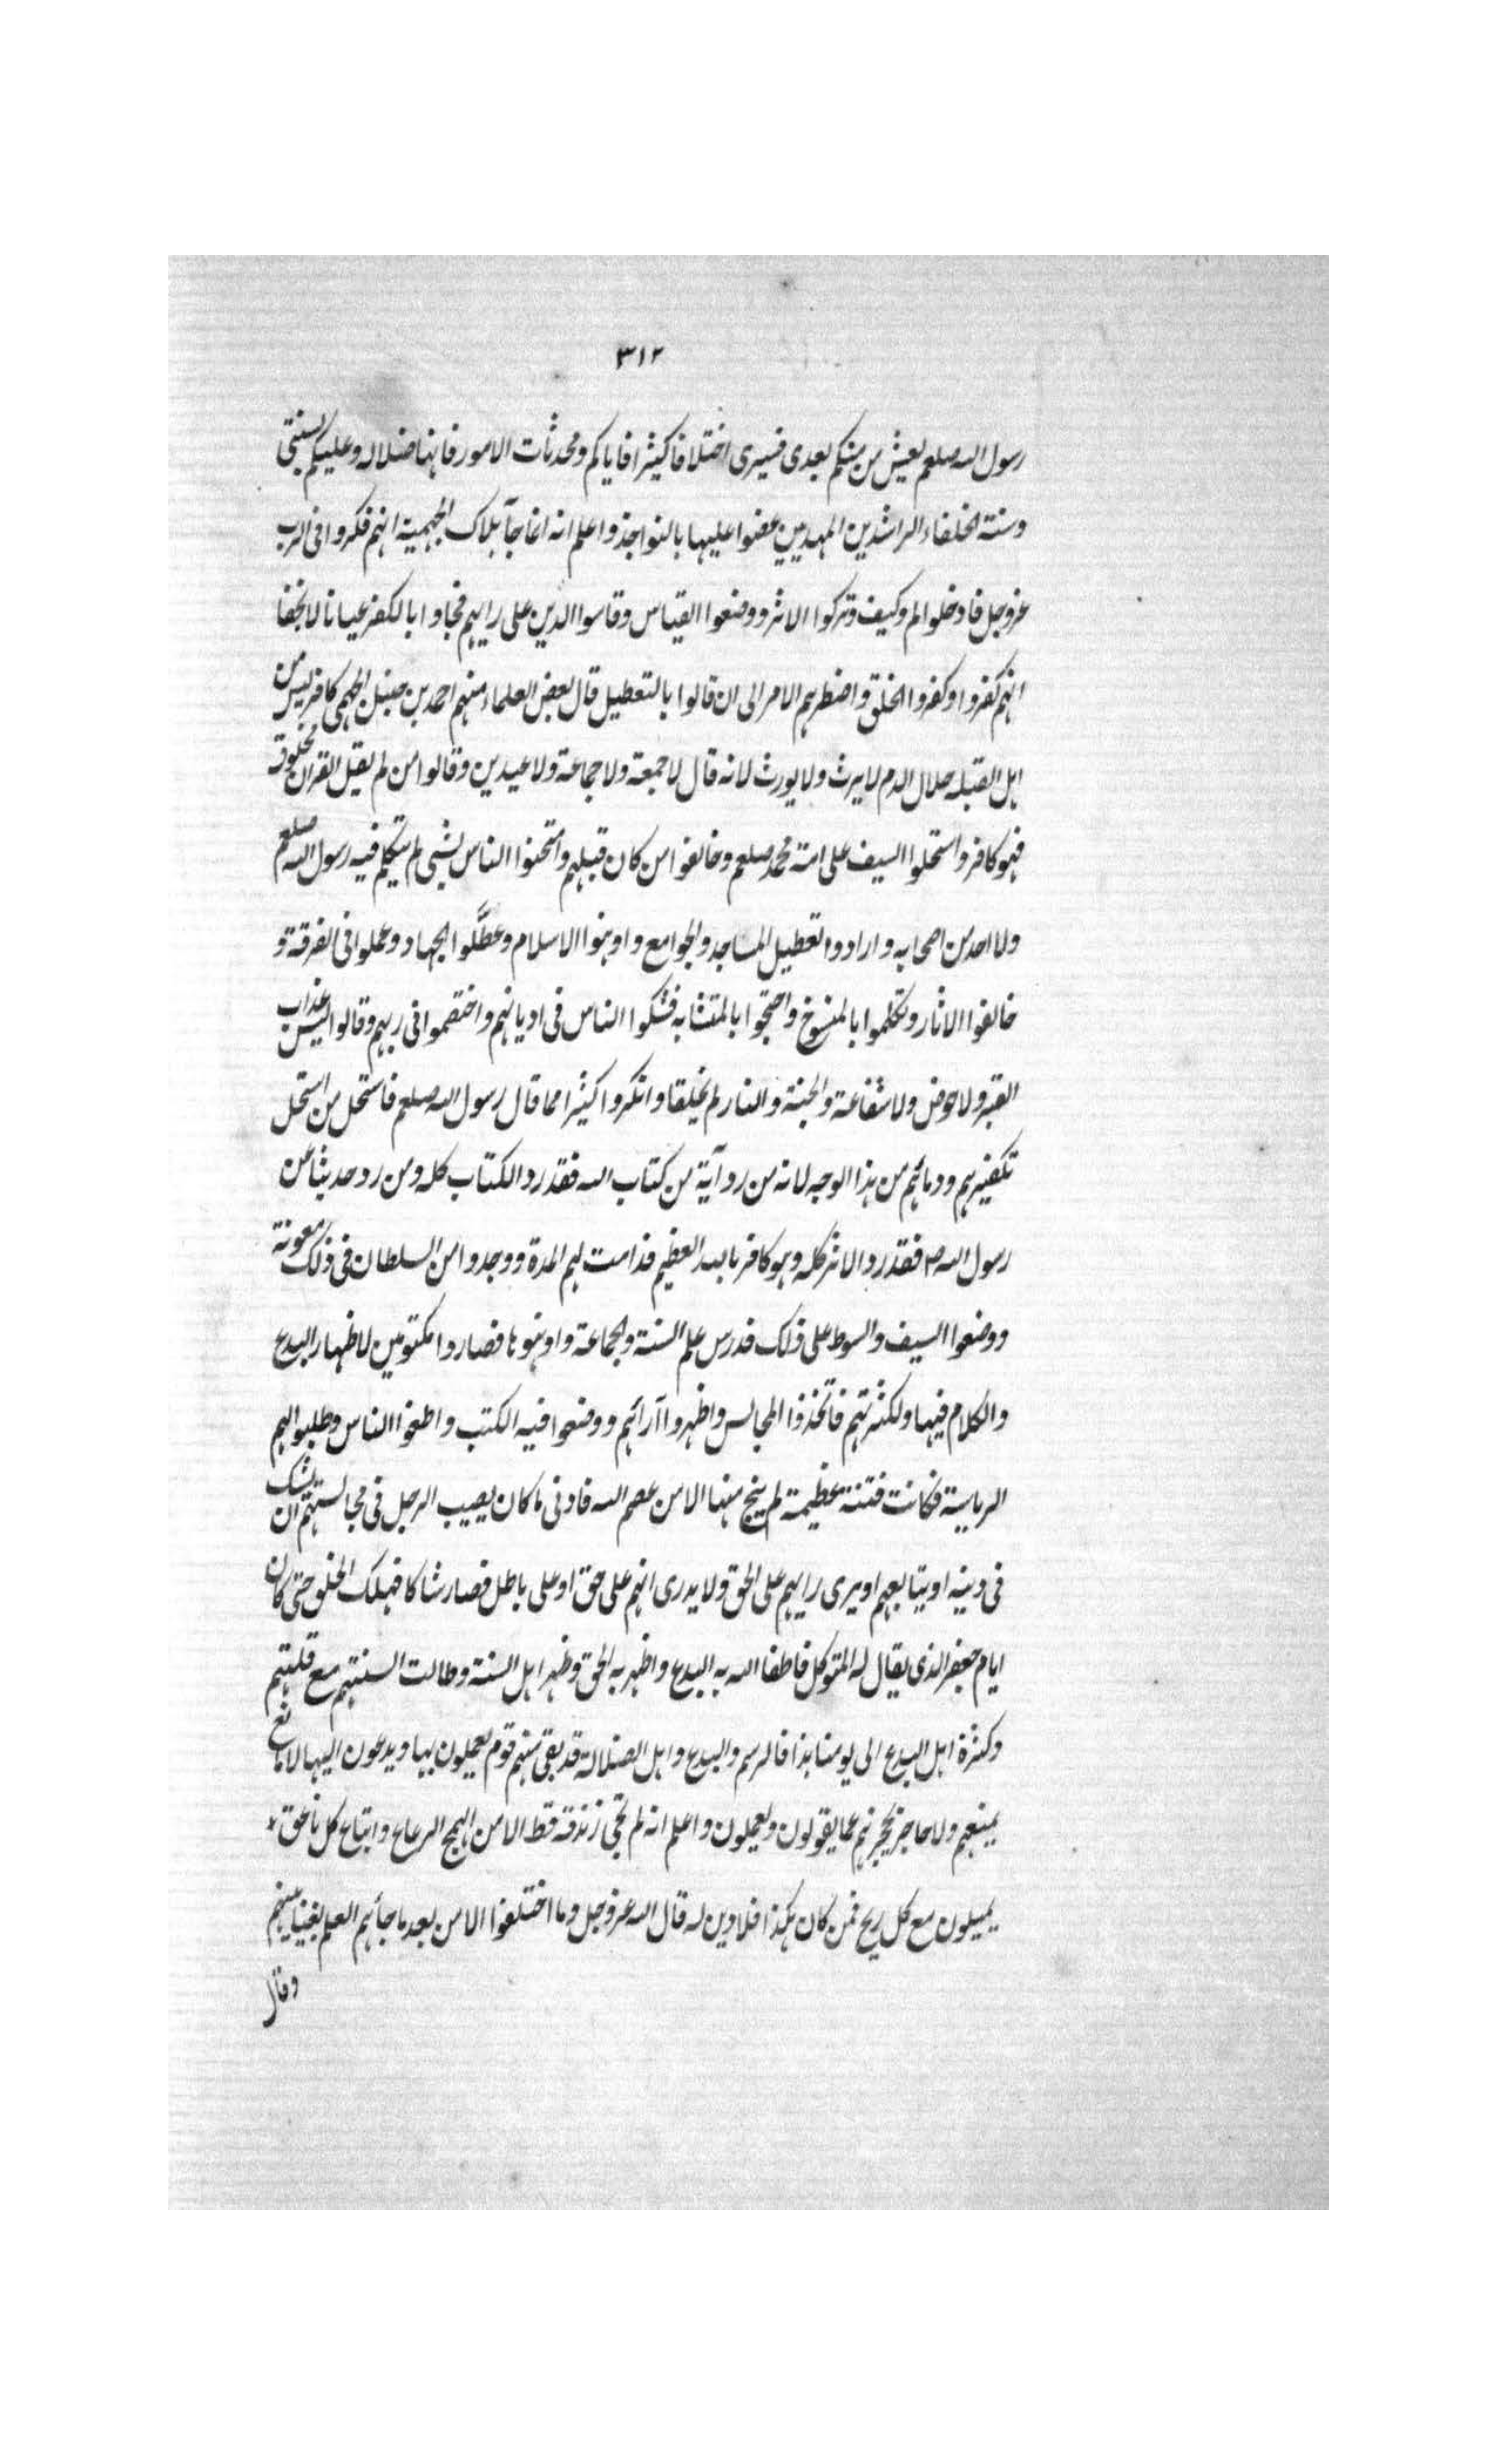 ٣١٢
رسول الله صلعم يعيش من منكم بعدى فسيرى اختلافا كثيرا فاياكم ومحدثات الامور فانها ضلاله وعليكم بسنتى
وسنة الخلفاء الراشدين المهديين عضوا عليها بالنواجذ واعلم انه انما جآ بلاك الجهمية انهم فكروا فى الرب
عز وجل فادخلوا لم وكيف وتركوا الاثر ووضعوا القياس وقاسوا الدين على رايهم فجاوا بالكفر عيانا لا يخفا
انهم كفروا وكفروا الخلق واضطرهم الامر الى ان قالوا بالتعطيل قال بعض العلماء منهم احمد بن حنبل الجهمى كافر ليس من
اهل القبله حلال الدم لا يرث ولا يورث لانه قال لا جمعة ولا جماعة ولا عيدين وقالوا من لم يقل القران مخلوق
فهو كافر واستحلوا السيف على امة محمد صلعم وخالفوا من كان قبلهم وامتحنوا الناس بشيى لم يتكلم فيه رسول الله صلعم
ولا احد من اصحابه وارادوا تعطيل المساجد والجوامع واوهنوا الاسلام وعطّلوا الجهاد وعملوا فى الفرقة و
خالفوا الاثار وتكلموا بالمنسوخ واحتجوا بالمتشابه فشكوا الناس فى اديانهم واختصموا فى ربهم وقالوا ليس عذاب
القبر ولا حوض ولا شفاعة والجنة والنار لم يخلقا وانكروا كثيرا مما قال رسول الله صلعم فاستحل من استحل
تكفيرهم ودمائهم من هذا الوجه لانه من رد آية من كتاب الله فقد رد الكتاب كله ومن رد حديثا عن
رسول الله ص فقد رد الاثر كله وهو كافر بالله العظيم فدامت لهم المدة ووجدوا من السلطان فى ذلك معونة
ووضعوا السيف والسوط على ذلك فدرس علم السنة والجماعة واوهنوها فصاروا مكتومين لاظهار البدع
والكلام فيها ولكثرتهم فاتخذوا المجالس واظهروا آرائهم ووضعوا فيه الكتب واطمعوا الناس وطلبوا لهم
الرياسة فكانت فتنة عظيمة لم ينج منها الا من عصم الله فادنى ما كان يصيب الرجل فى مجالستهم ان يشك
فى دينه او يتابعهم او يرى رايهم على الحق ولا يدرى انهم على حق او على باطل فصار شاكا فهلك الخلق حتى كان
ايام جعفر الذى يقال له المتوكل فاطفا الله به البدع واظهر به الحق وظهر اهل السنة وطالت السنتهم مع قلتهم
وكثرة اهل البدع الى يومنا هذا فالرسم والبدع واهل الضلالة قد بقى منهم قوم يعملون بها ويدعون اليها لا مانع
يمنعهم ولا حاجز يحجزهم عما يقولون ويعملون واعلم انه لم تجى زندقة قط الا من الهمج الرعاع واتباع كل ناعق
يميلون مع كل ريح فمن كان هكذا فلا دين له قال الله عز وجل وما اختلفوا الا من بعد ما جائهم العلم بغيا بينهم
وقال